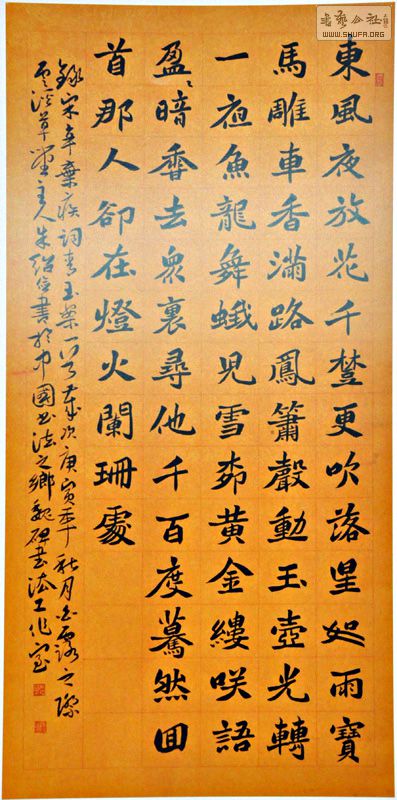 東風夜放花千樹更吹落星如雨寶
馬雕車香滿路鳳簫聲動玉壺光轉
一夜魚龍舞蛾兒雪柳黃金縷咲語
盈〻暗香去衆裏尋他千百度驀然囬
首那人卻在燈火闌珊處
錄宋辛棄疾詞青玉案一首歲次庚寅年秋月白露之際
草堂主人朱書於中國書法之鄉魏碑書法工作室
書藝公社
WWW.SHUFA.ORG